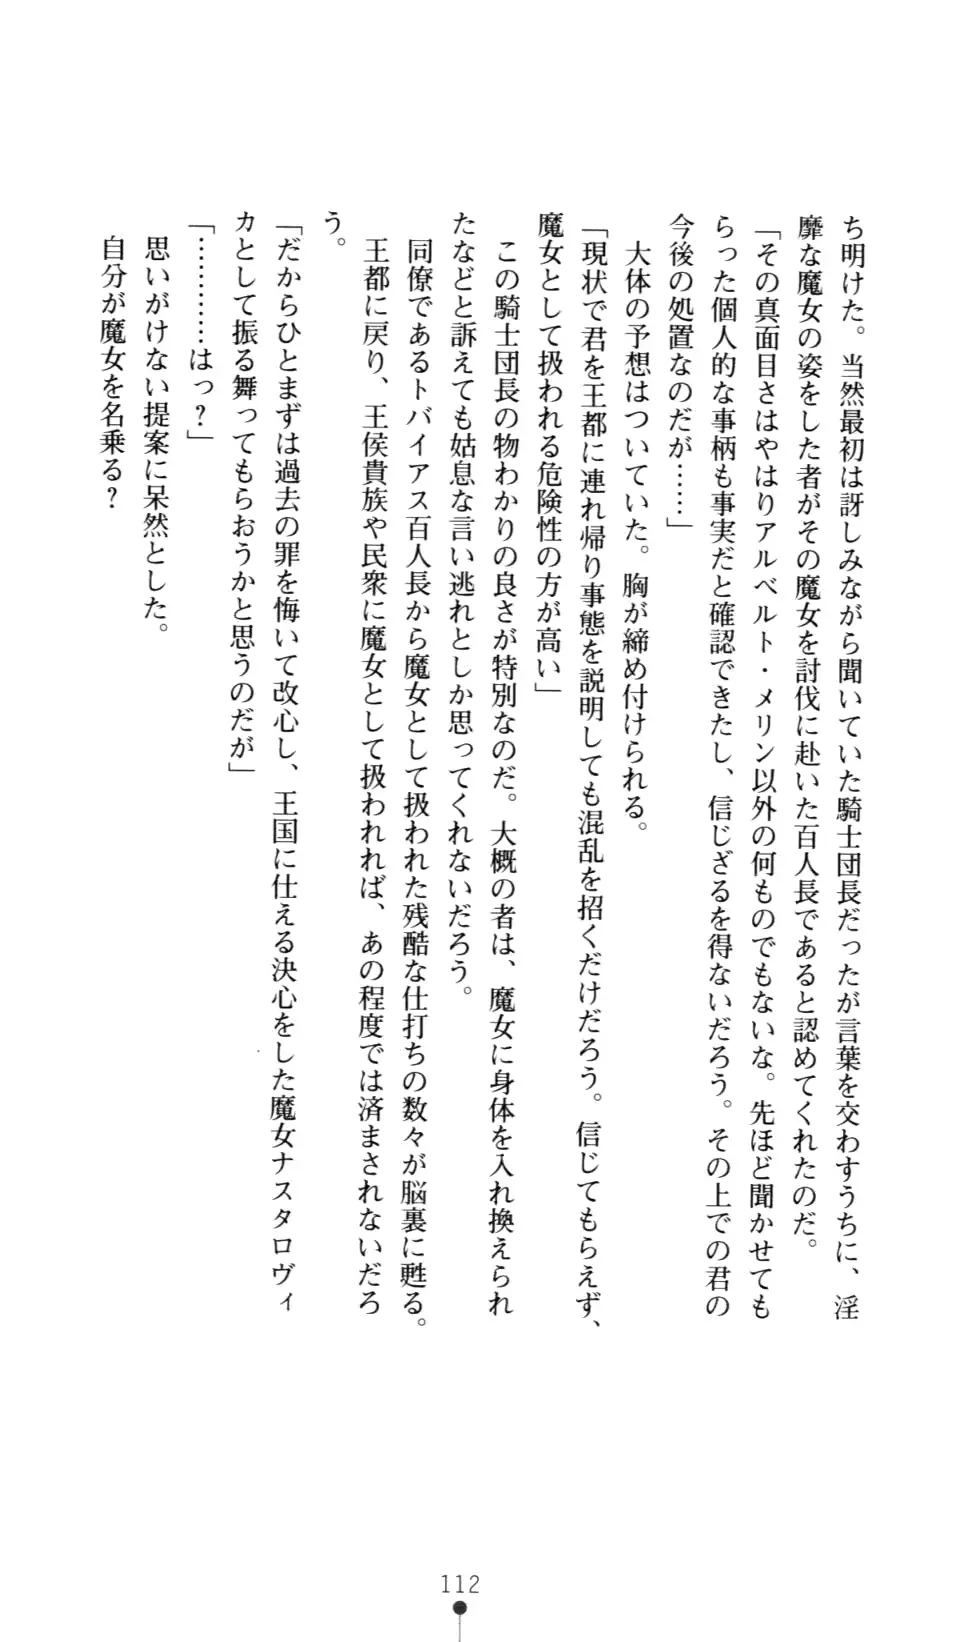 ち明けた。当然最初は訝しみながら聞いていた騎士団長だったが言葉を交わすうちに、淫
靡な魔女の姿をした者がその魔女を討伐に赴いた百人長であると認めてくれたのだ。
「その真面目さはやはりアルベルト・メリン以外の何ものでもないな。先ほど聞かせても
らった個人的な事柄も事実だと確認できたし、信じざるを得ないだろう。その上での君の
今後の処置なのだが……」
　大体の予想はついていた。胸が締め付けられる。
「現状で君を王都に連れ帰り事態を説明しても混乱を招くだけだろう。信じてもらえず、
魔女として扱われる危険性の方が高い」
　この騎士団長の物わかりの良さが特別なのだ。大概の者は、魔女に身体を入れ換えられ
たなどと訴えても姑息な言い逃れとしか思ってくれないだろう。
　同僚であるトバイアス百人長から魔女として扱われた残酷な仕打ちの数々が脳裏に甦る。
　王都に戻り、王侯貴族や民衆に魔女として扱われれば、あの程度では済まされないだろ
う。
「だからひとまずは過去の罪を悔いて改心し、王国に仕える決心をした魔女ナスタロヴィ
カとして振る舞ってもらおうかと思うのだが」
「…………はっ？」
　思いがけない提案に呆然とした。
　自分が魔女を名乗る？
112